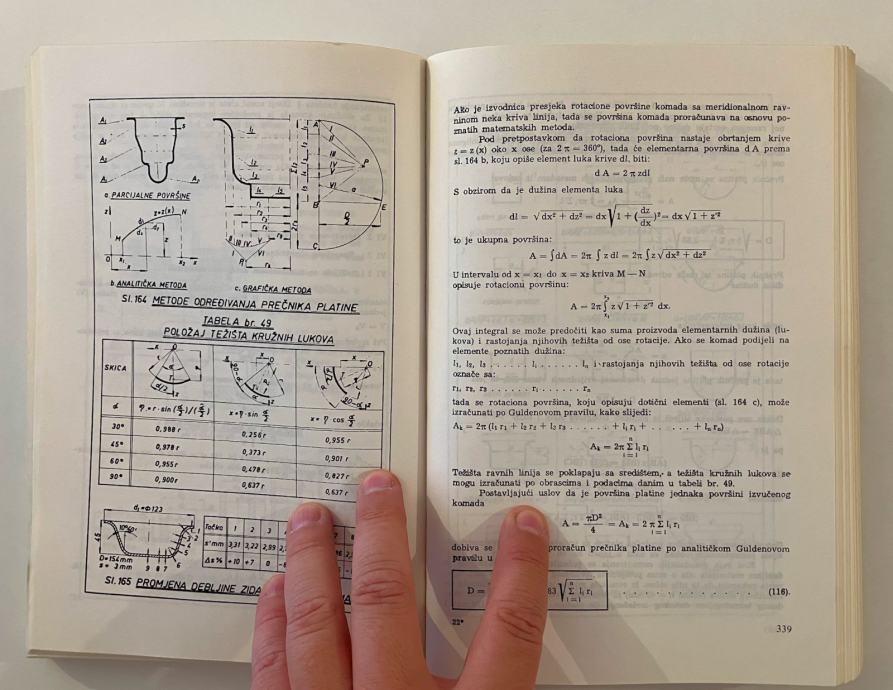 a. PARCIJALNE POVRŠINE
b. ANALITIČKA METODA
c. GRAFIČKA METODA
Sl. 164 METODE ODREĐIVANJA PREČNIKA PLATINE
TABELA br. 49
POLOŽAJ TEŽIŠTA KRUŽNIH LUKOVA
SKICA
30° 0,988 r 0,256 r 0,955 r
45° 0,978 r 0,373 r 0,901 r
60° 0,955 r 0,478 r 0,827 r
90° 0,900 r 0,637 r 0,637 r
d₁ = Φ123
D = 154 mm
s = 3 mm
Tačka 1 2 3
s' mm 3,31 3,22 2,99
Δs % +10 +7 0
Sl. 165 PROMJENA DEBLJINE ZIDA
Ako je izvodnica presjeka rotacione površine komada sa meridionalnom rav-
ninom neka kriva linija, tada se površina komada proračunava na osnovu po-
znatih matematskih metoda.
Pod pretpostavkom da rotaciona površina nastaje obrtanjem krive
z = z (x) oko x ose (za 2 π = 360°), tada će elementarna površina d A prema
sl. 164 b, koju opiše element luka krive dl, biti:
d A = 2 π zdl
S obzirom da je dužina elementa luka
dl = √dx² + dz² = dx √1 + (dz/dx)² = dx √1 + z'²
to je ukupna površina:
A = ∫dA = 2π ∫ z dl = 2π ∫ z √dx² + dz²
U intervalu od x = x₁ do x = x₂ kriva M — N
opisuje rotacionu površinu:
A = 2π ∫ z √1 + z'² dx.
Ovaj integral se može predočiti kao suma proizvoda elementarnih dužina (lu-
kova) i rastojanja njihovih težišta od ose rotacije. Ako se komad podijeli na
elemente poznatih dužina:
l₁, l₂, l₃ . . . . . . . . lᵢ . . . . . . . . lₙ i rastojanja njihovih težišta od ose rotacije
označe sa:
r₁, r₂, r₃ . . . . . . . . rᵢ . . . . . . . . rₙ
tada se rotaciona površina, koju opisuju dotični elementi (sl. 164 c), može
izračunati po Guldenovom pravilu, kako slijedi:
Aₖ = 2π (l₁ r₁ + l₂ r₂ + l₃ r₃ . . . . . . + lᵢ rᵢ + . . . . . . + lₙ rₙ)
Aₖ = 2π Σ lᵢ rᵢ
Težišta ravnih linija se poklapaju sa središtem, a težišta kružnih lukova se
mogu izračunati po obrascima i podacima danim u tabeli br. 49.
Postavljajući uslov da je površina platine jednaka površini izvučenog
komada
A = πD²/4 = Aₖ = 2 π Σ lᵢ rᵢ
dobiva se proračun prečnika platine po analitičkom Guldenovom
pravilu u
D = 83 √Σ lᵢ rᵢ . . . . . . . . . . . (116).
22*
339